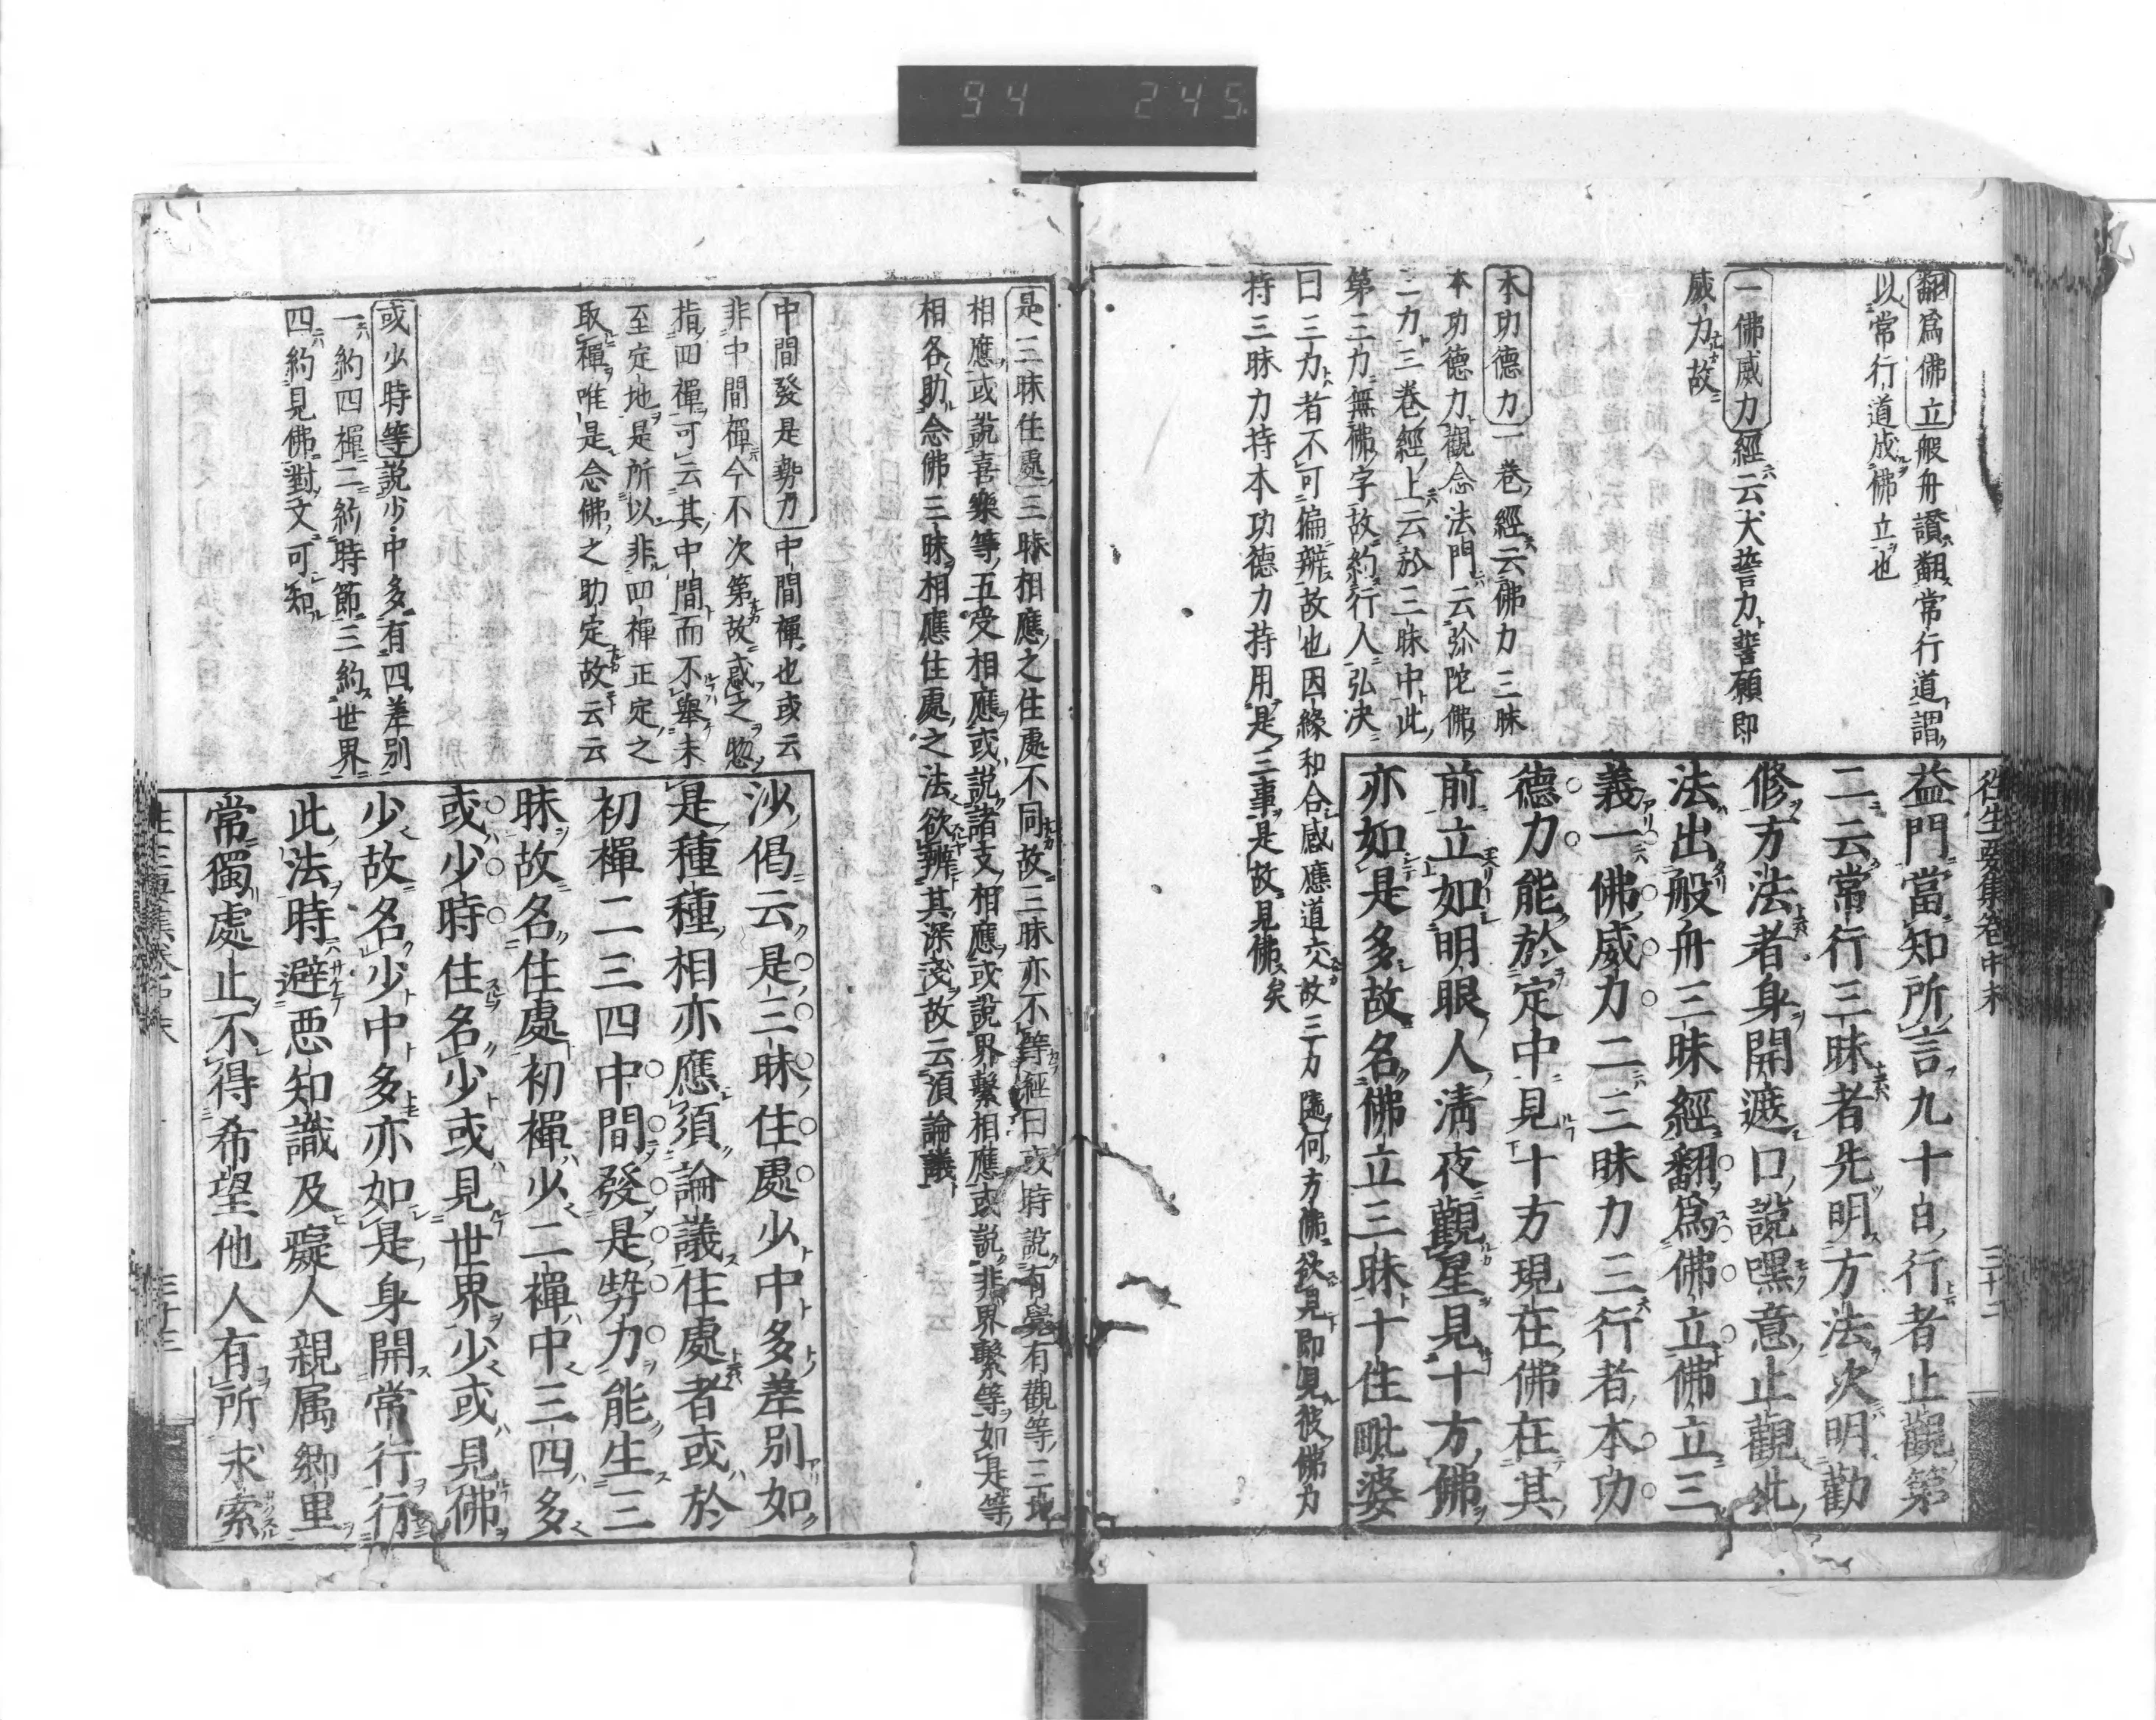 94 245
往生要集卷中末 三十二
翻爲佛立般舟讃翻常行道謂
以常行道成佛立也
一佛威力經云大誓力誓願即
威力故
本功德力一卷經云佛力三昧
本功德力觀念法門云弥陀佛
二力三卷經上云於三昧中此
第三力無佛字故約行人弘決
曰三力者不可偏辨故也因緣和合感應道交故三力隨何方佛欲見即見彼佛力
持三昧力持本功德力持用是三事是故見佛矣
益門當知所言九十日行者止觀第
二云常行三昧者先明方法次明勸
修方法者身開遮口說嘿意止觀此
法出般舟三昧經翻爲佛立佛立三
義一佛威力二三昧力三行者本功
德力能於定中見十方現在佛在其
前立如明眼人淸夜觀星見十方佛
亦如是多故名佛立三昧十住毗婆
是三昧住處三昧相應之住處不同故三昧亦不等經曰或時說有覺有觀等三地
相應或說喜樂等五受相應或說諸支相應或說界繫相應或說非界繫等如是等
相各助念佛三昧相應住處之法欲辨其深淺故云須論議
中間發是勢力中間禪也或云
非中間禪今不次第故或之惣
指四禪可云其中間而不擧未
至定地是所以非四禪正定之
取禪唯是念佛之助定故云云
或少時等說少中多有四差別
一約四禪二約時節三約世界
四約見佛對文可知
沙偈云是三昧住處少中多差別如
是種種相亦應須論議住處者或於
初禪二三四中間發是勢力能生三
昧故名住處初禪少二禪中三四多
或少時住名少或見世界少或見佛
少故名少中多亦如是身開常行行
此法時避惡知識及癡人親属鄉里
常獨處止不得希望他人有所求索
三十三